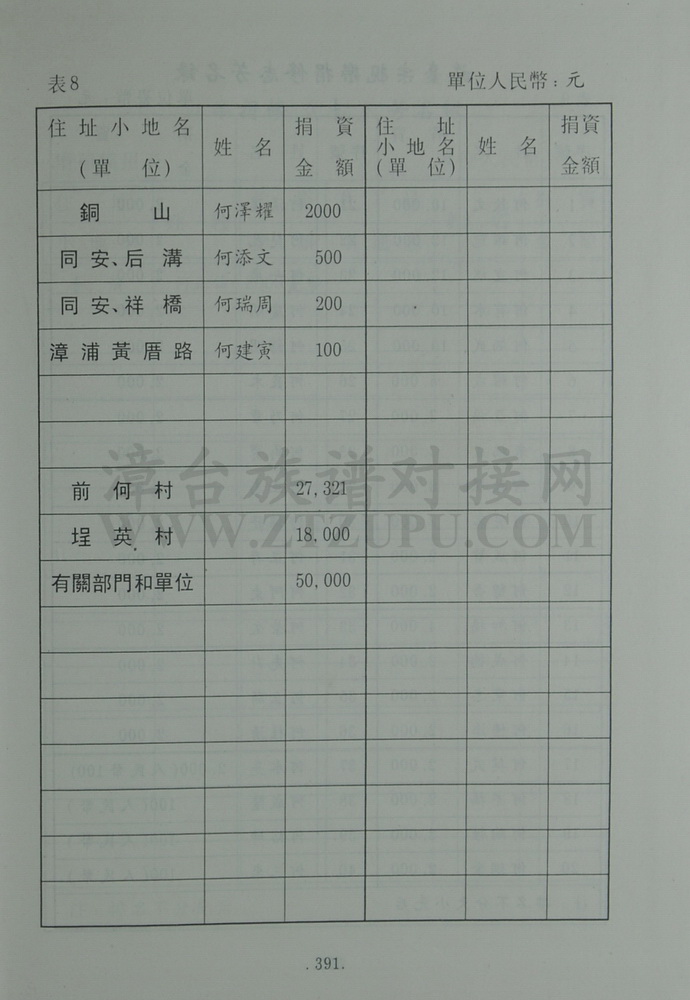 表8 單位人民幣：元
住址小地名(單 位) 姓 名 捐資金額 住址小地名(單 位) 姓 名 捐資金額
銅 山 何澤耀 2000
同安、后溝 何添文 500
同安、祥橋 何瑞周 200
漳浦黃厝路 何建寅 100
前何村 27,321
埕英村 18,000
有關部門和單位 50,000
漳台族谱对接网
WWW.ZTZUPU.COM
.391.